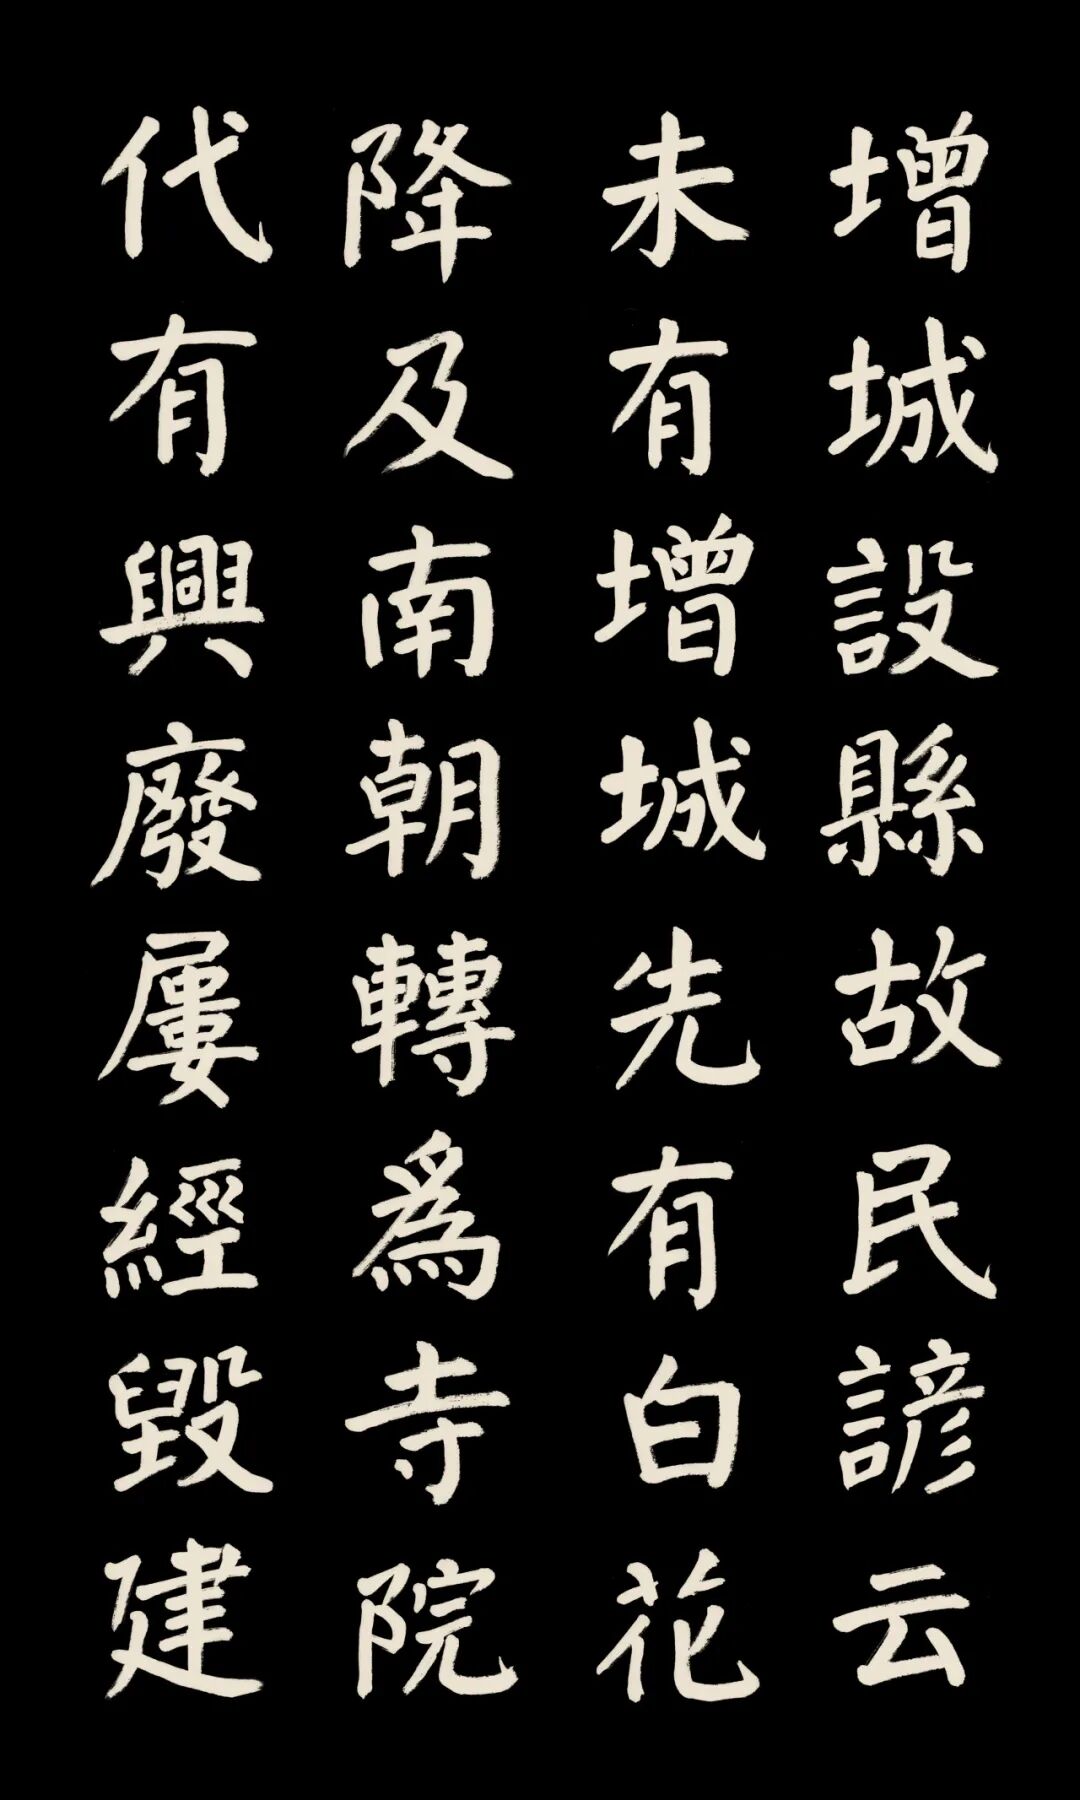 增城設縣故民諺云
未有增城先有白花
降及南朝轉爲寺院
代有興廢屢經毀建